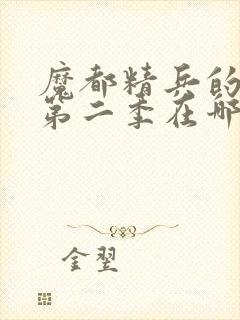 魔都精兵的
第二季在哪
金翌